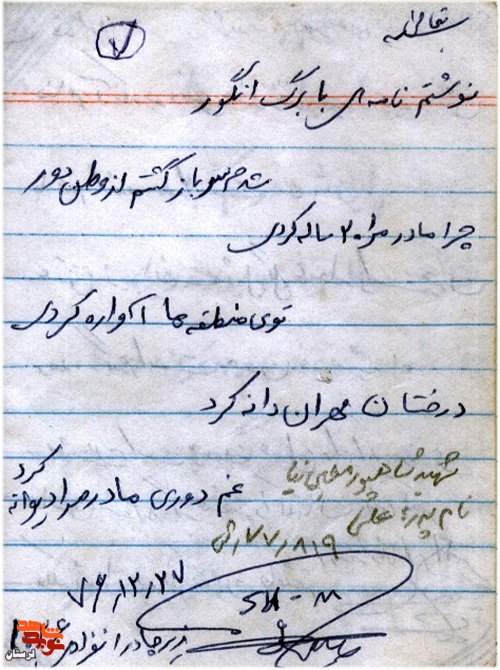 بسمه تعالی
۷
نوشتم نامه‌ی با برگ انگور
شدم سرباز گشتم از وطن دور
چرا مادر مرا ۲۰ ساله کردی
توی منطقه ها آواره کردی
درختان مهران دانه کرد
غم دوری مادر مرا دیوانه کرد
شهید شاهپور
نام پدر: علی
۷۶,۱۲,۲۷
SH-M
نوید شاهد
لرستان